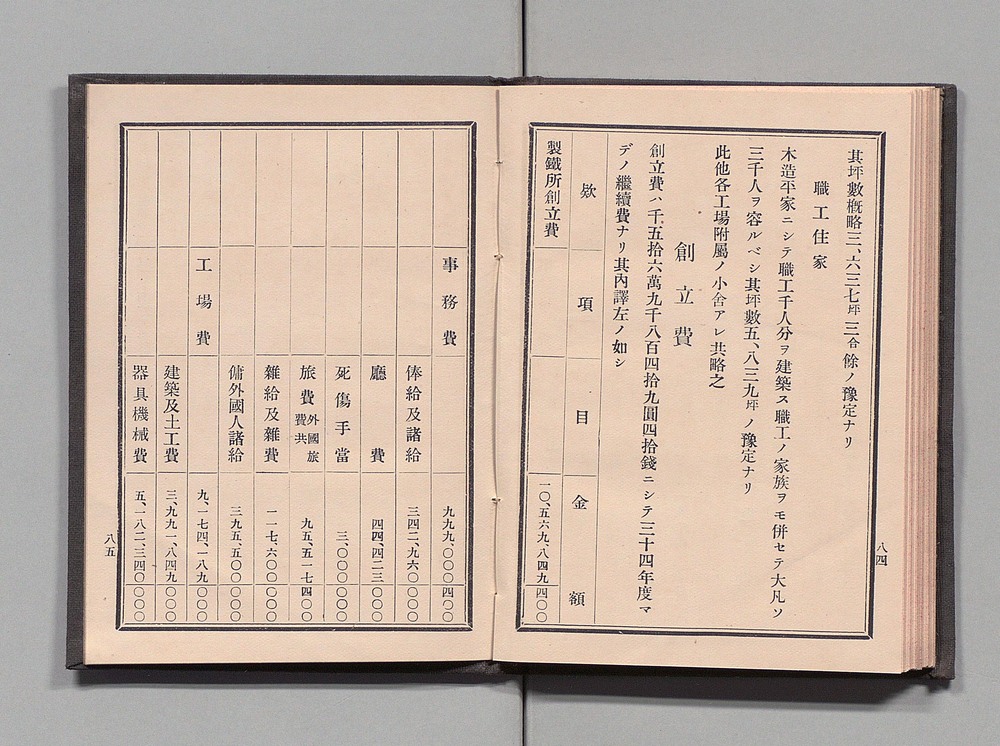 其坪數概略三、六三七坪三合餘ノ豫定ナリ
職工住家
木造平家ニシテ職工千人分ヲ建築ス職工ノ家族ヲモ併セテ大凡ソ
三千人ヲ容ルベシ其坪數五、八三九坪ノ豫定ナリ
此他各工場附屬ノ小舍アレ共略之
創立費
創立費ハ千五拾六萬九千八百四拾九圓四拾錢ニシテ三十四年度マ
デノ繼續費ナリ其內譯左ノ如シ
欵 項 目 金額
製鐵所創立費 一〇、五六九、八四九 四〇〇
八四
事務費 九九九、〇〇〇 四〇〇
俸給及諸給 三四二、九六〇 〇〇〇
廳費 四四、四二三 〇〇〇
死傷手當 三、〇〇〇 〇〇〇
旅費 外國旅費共 九五、五一七 四〇〇
雜給及雜費 一一七、六〇〇 〇〇〇
傭外國人諸給 三九五、五〇〇 〇〇〇
工場費 九、一七四、一八九 〇〇〇
建築及土工費 三、九九一、八四九 〇〇〇
器具機械費 五、一八二、三四〇 〇〇〇
八五